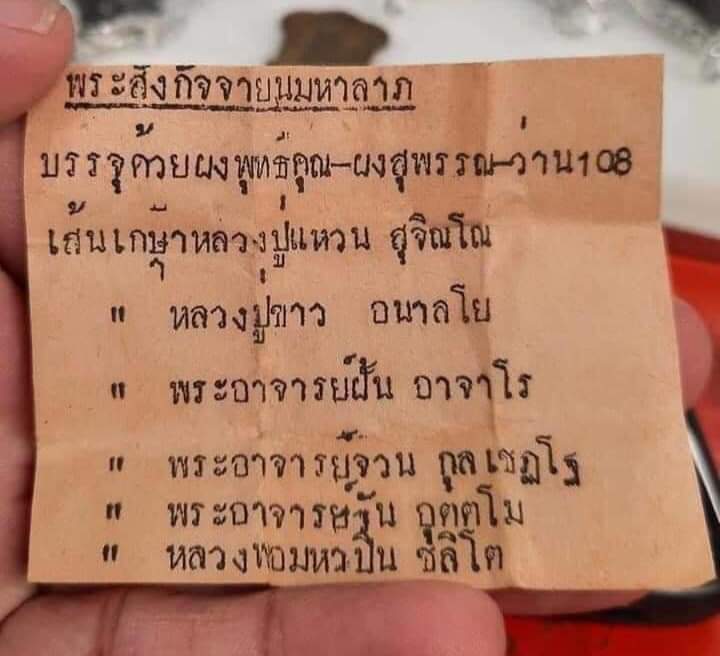 พระสังกัจจายนมหาลาภ
บรรจุด้วยผงพุทธคุณ-ผงสุพรรณ-ว่าน108
เส้นเกษาหลวงปู่แหวน สุจิณโณ
" หลวงปู่ขาว อนาลโย
" พระอาจารย์ฝั้น อาจาโร
" พระอาจารย์จวน กุลเชฏโฐ
" พระอาจารย์วัน อุตตโม
" หลวงพ่อมหาปิ่น ชลิโต